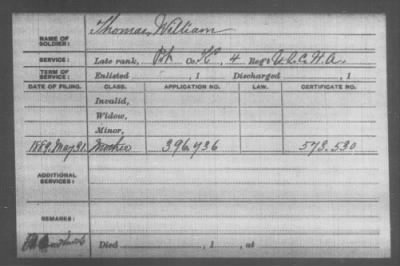 NAME OF SOLDIER: Thomas, William
SERVICE: Late rank, Pvt Co. K, 4 Reg't U.S.C.H.A.
TERM OF SERVICE: Enlisted , 1 Discharged , 1
DATE OF FILING. CLASS. APPLICATION NO. LAW. CERTIFICATE NO.
Invalid,
Widow,
Minor,
1889, May 31. Mother 396.736 573.530
ADDITIONAL SERVICES:
REMARKS:
Died , 1 , at